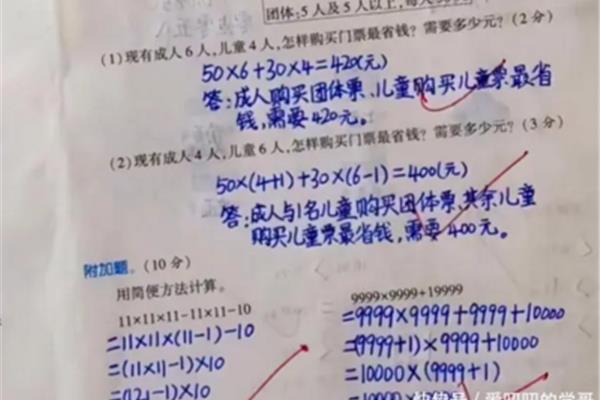 团体:5人及5人以上,每人
(1)现有成人6人,儿童4人,怎样购买门票最省钱?需要多少元?(2分)
50×6+30×4=420(元)
答:成人购买团体票、儿童购买儿童票最省
钱,需要420元。
(2)现有成人4人,儿童6人,怎样购买门票最省钱?需要多少元?(3分)
50×(4+1)+30×(6-1)=400(元)
答:成人与1名儿童购买团体票,其余儿童
购买儿童票最省钱,需要400元。
附加题。(10分)
用简便方法计算。
11×11×11-11×11-10
=11×11×(11-1)-10
=(11×11-1)×10
=(121-1)×10
9999×9999+19999
=9999×9999+9999+10000
=(9999+1)×9999+10000
=10000×(9999+1)
=10000×